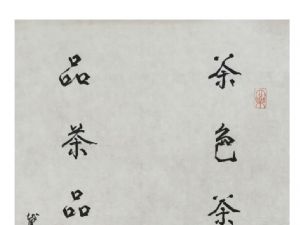 茶色茶
品茶品